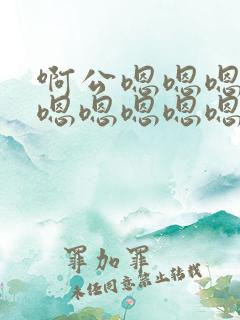 啊公嗯嗯嗯
嗯嗯嗯嗯嗯
罪加罪
未经同意禁止转载